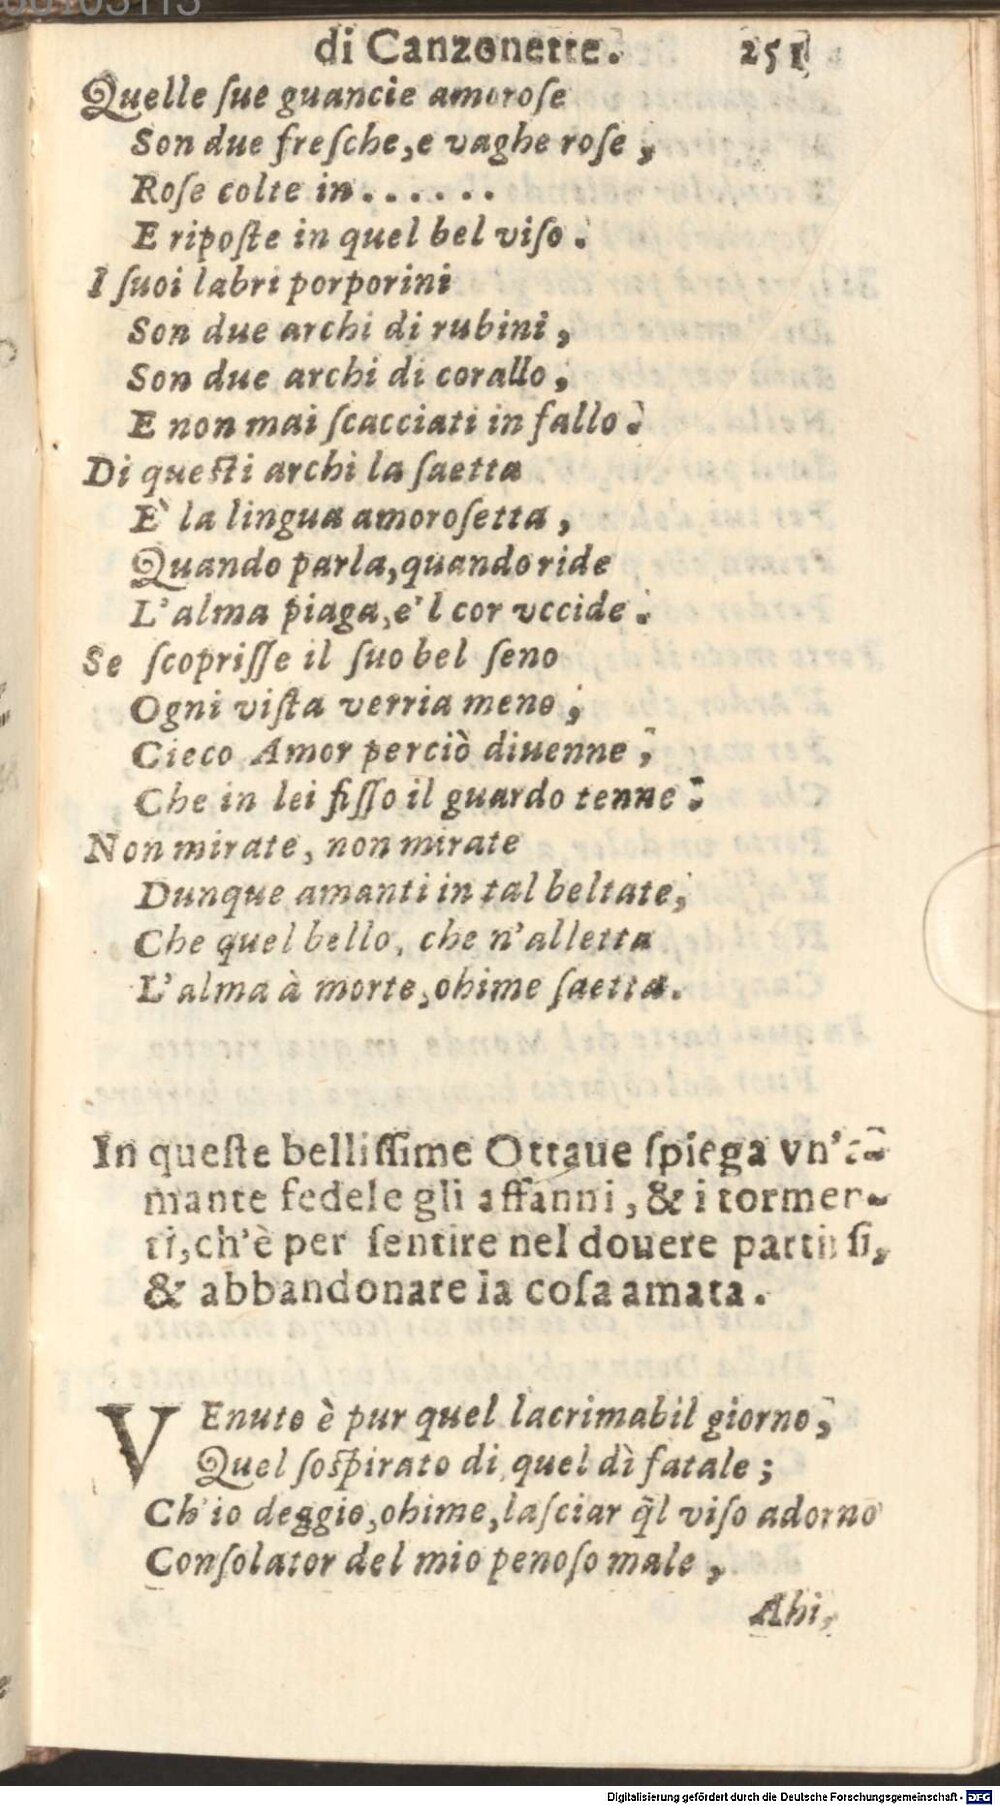 di Canzonette. 251
Quelle ſue guancie amoroſe
Son due freſche, e vaghe roſe,
Roſe colte in......
E ripoſte in quel bel viſo.
I ſuoi labri porporini
Son due archi di rubini,
Son due archi di corallo,
E non mai ſcacciati in fallo.
Di queſti archi la ſaetta
È la lingua amoroſetta,
Quando parla, quando ride
L'alma piaga, e'l cor vccide.
Se ſcopriſſe il ſuo bel ſeno
Ogni viſta verria meno;
Cieco Amor perciò diuenne,
Che in lei fiſſo il guardo tenne.
Non mirate, non mirate
Dunque amanti in tal beltate,
Che quel bello, che n'alletta
L'alma à morte, ohime ſaetta.
In queſte belliſſime Ottaue ſpiega vn'a-
mante fedele gli affanni, & i tormen-
ti, ch'è per ſentire nel douere partirſi,
& abbandonare la coſa amata.
VEnuto è pur quel lacrimabil giorno,
Quel ſoſpirato di quel dì fatale;
Ch'io deggio, ohime, laſciar q̃l viſo adorno
Conſolator del mio penoſo male,
Ahi,
Digitalisierung gefördert durch die Deutsche Forschungsgemeinschaft - DFG